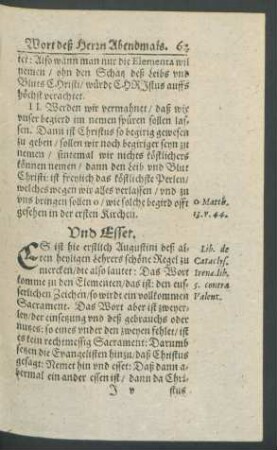 Wort deß Herrn Abendmals. 63
tet: Also wann man nur die Elementa wil
nemen / ohn den Schatz deß Leibs vnd
Bluts Christi / würde CHRIstus auffs
höchst verachtet.
II. Werden wir vermahnet / daß wir
vnser begierd im nemen spüren sollen las-
sen. Dann ist Christus so begirig gewesen
zu geben / sollen wir noch begiriger seyn zu
nemen / sintemal wir nichts köstlichers
können nemen / dann den Leib vnd Blut
Christi: ist freylich das köstlichste Perlen /
welches wegen wir alles verlassen / vnd zu
vns bringen sollen o / wie solchs begird offt
gesehen in der ersten Kirchen.
o Matth.
13. v. 44.
Vnd Esset.
ES ist hie erstlich Augustini deß al-
ten heyligen Lehrers schöne Regel zu
mercken / die also lautet: Das Wort
komme zu den Elementen / das ist: den eus-
serlichen Zeichen / so wirdt ein vollkommen
Sacrament. Das Wort aber ist zweyer-
ley / der einsetzung vnd deß gebrauchs oder
nutzes: so eines vnder den zweyen fehlet / ist
es kein rechtmessig Sacrament: Darumb
setzen die Evangelisten hinzu / daß Christus
gesagt: Nemet hin vnd esset: Daß dann a-
bermal ein ander essen ist / dann da Chri-
Lib. de
Cataclys.
Irenæ. lib.
5. contra
Valent.
J v stus